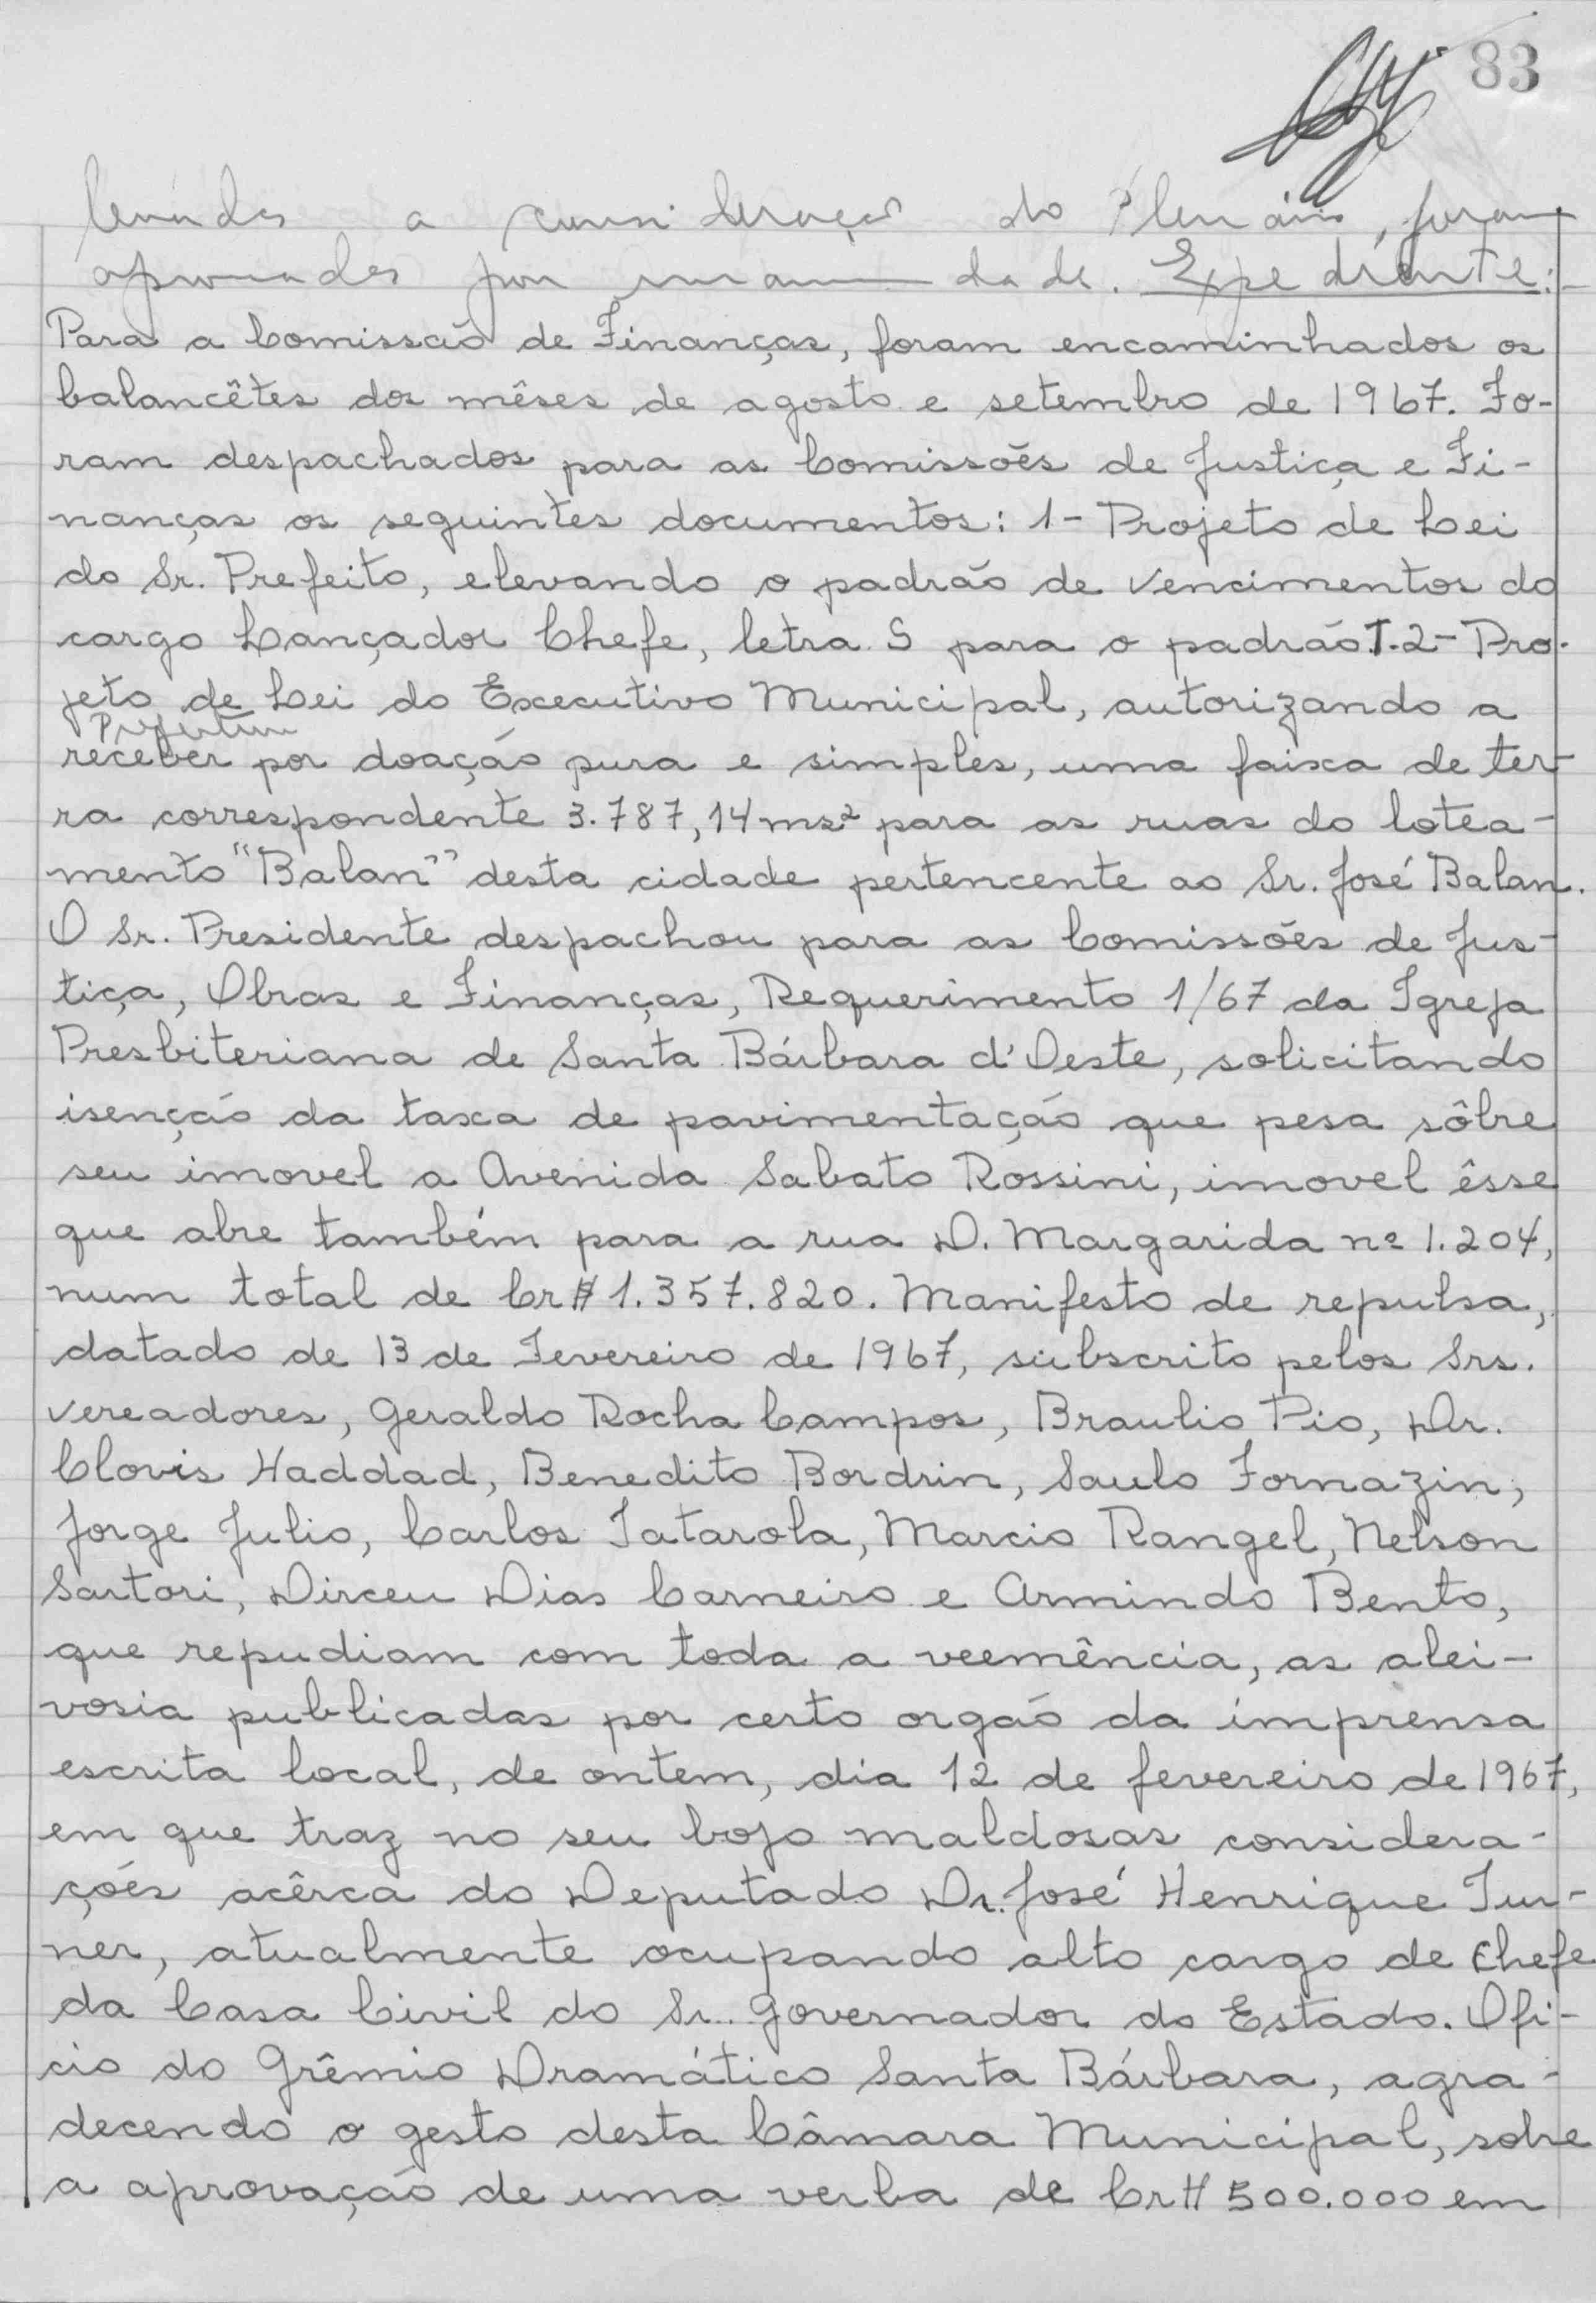 83
levadas a consideração do Plenário, foram
aprovadas por unanimidade. Expediente:-
Para a Comissão de Finanças, foram encaminhados os
balancêtes dos mêses de agosto e setembro de 1967. Fo-
ram despachados para as Comissões de Justiça e Fi-
nanças os seguintes documentos: 1- Projeto de Lei
do Sr. Prefeito, elevando o padrão de vencimentos do
cargo Lançador Chefe, letra S para o padrão T. 2- Pro-
jeto de Lei do Executivo Municipal, autorizando a
Prefeitura
receber por doação pura e simples, uma faixa de ter-
ra correspondente 3.787,14 ms² para as ruas do lotea-
mento "Balan" desta cidade pertencente ao Sr. José Balan.
O Sr. Presidente despachou para as Comissões de Jus-
tiça, Obras e Finanças, Requerimento 1/67 da Igreja
Presbiteriana de Santa Bárbara d'Oeste, solicitando
isenção da taxa de pavimentação que pesa sôbre
seu imovel a Avenida Sabato Rossini, imovel êsse
que abre também para a rua D. Margarida nº 1.204,
num total de Cr$ 1.357.820. Manifesto de repulsa,
datado de 13 de Fevereiro de 1967, subscrito pelos Srs.
vereadores, Geraldo Rocha Campos, Braulio Pio, Dr.
Clovis Haddad, Benedito Bordrin, Saulo Fornazin,
Jorge Julio, Carlos Tatarola, Marcio Rangel, Nelson
Sartori, Dirceu Dias Carneiro e Armindo Bento,
que repudiam com toda a veemência, as alei-
vosia publicadas por certo orgão da imprensa
escrita local, de ontem, dia 12 de fevereiro de 1967,
em que traz no seu bojo maldosas considera-
ções acêrca do Deputado Dr. José Henrique Tur-
ner, atualmente ocupando alto cargo de Chefe
da Casa Civil do Sr. Governador do Estado. Ofi-
cio do Grêmio Dramático Santa Bárbara, agra-
decendo o gesto desta Câmara Municipal, sobre
a aprovação de uma verba de Cr$ 500.000 em